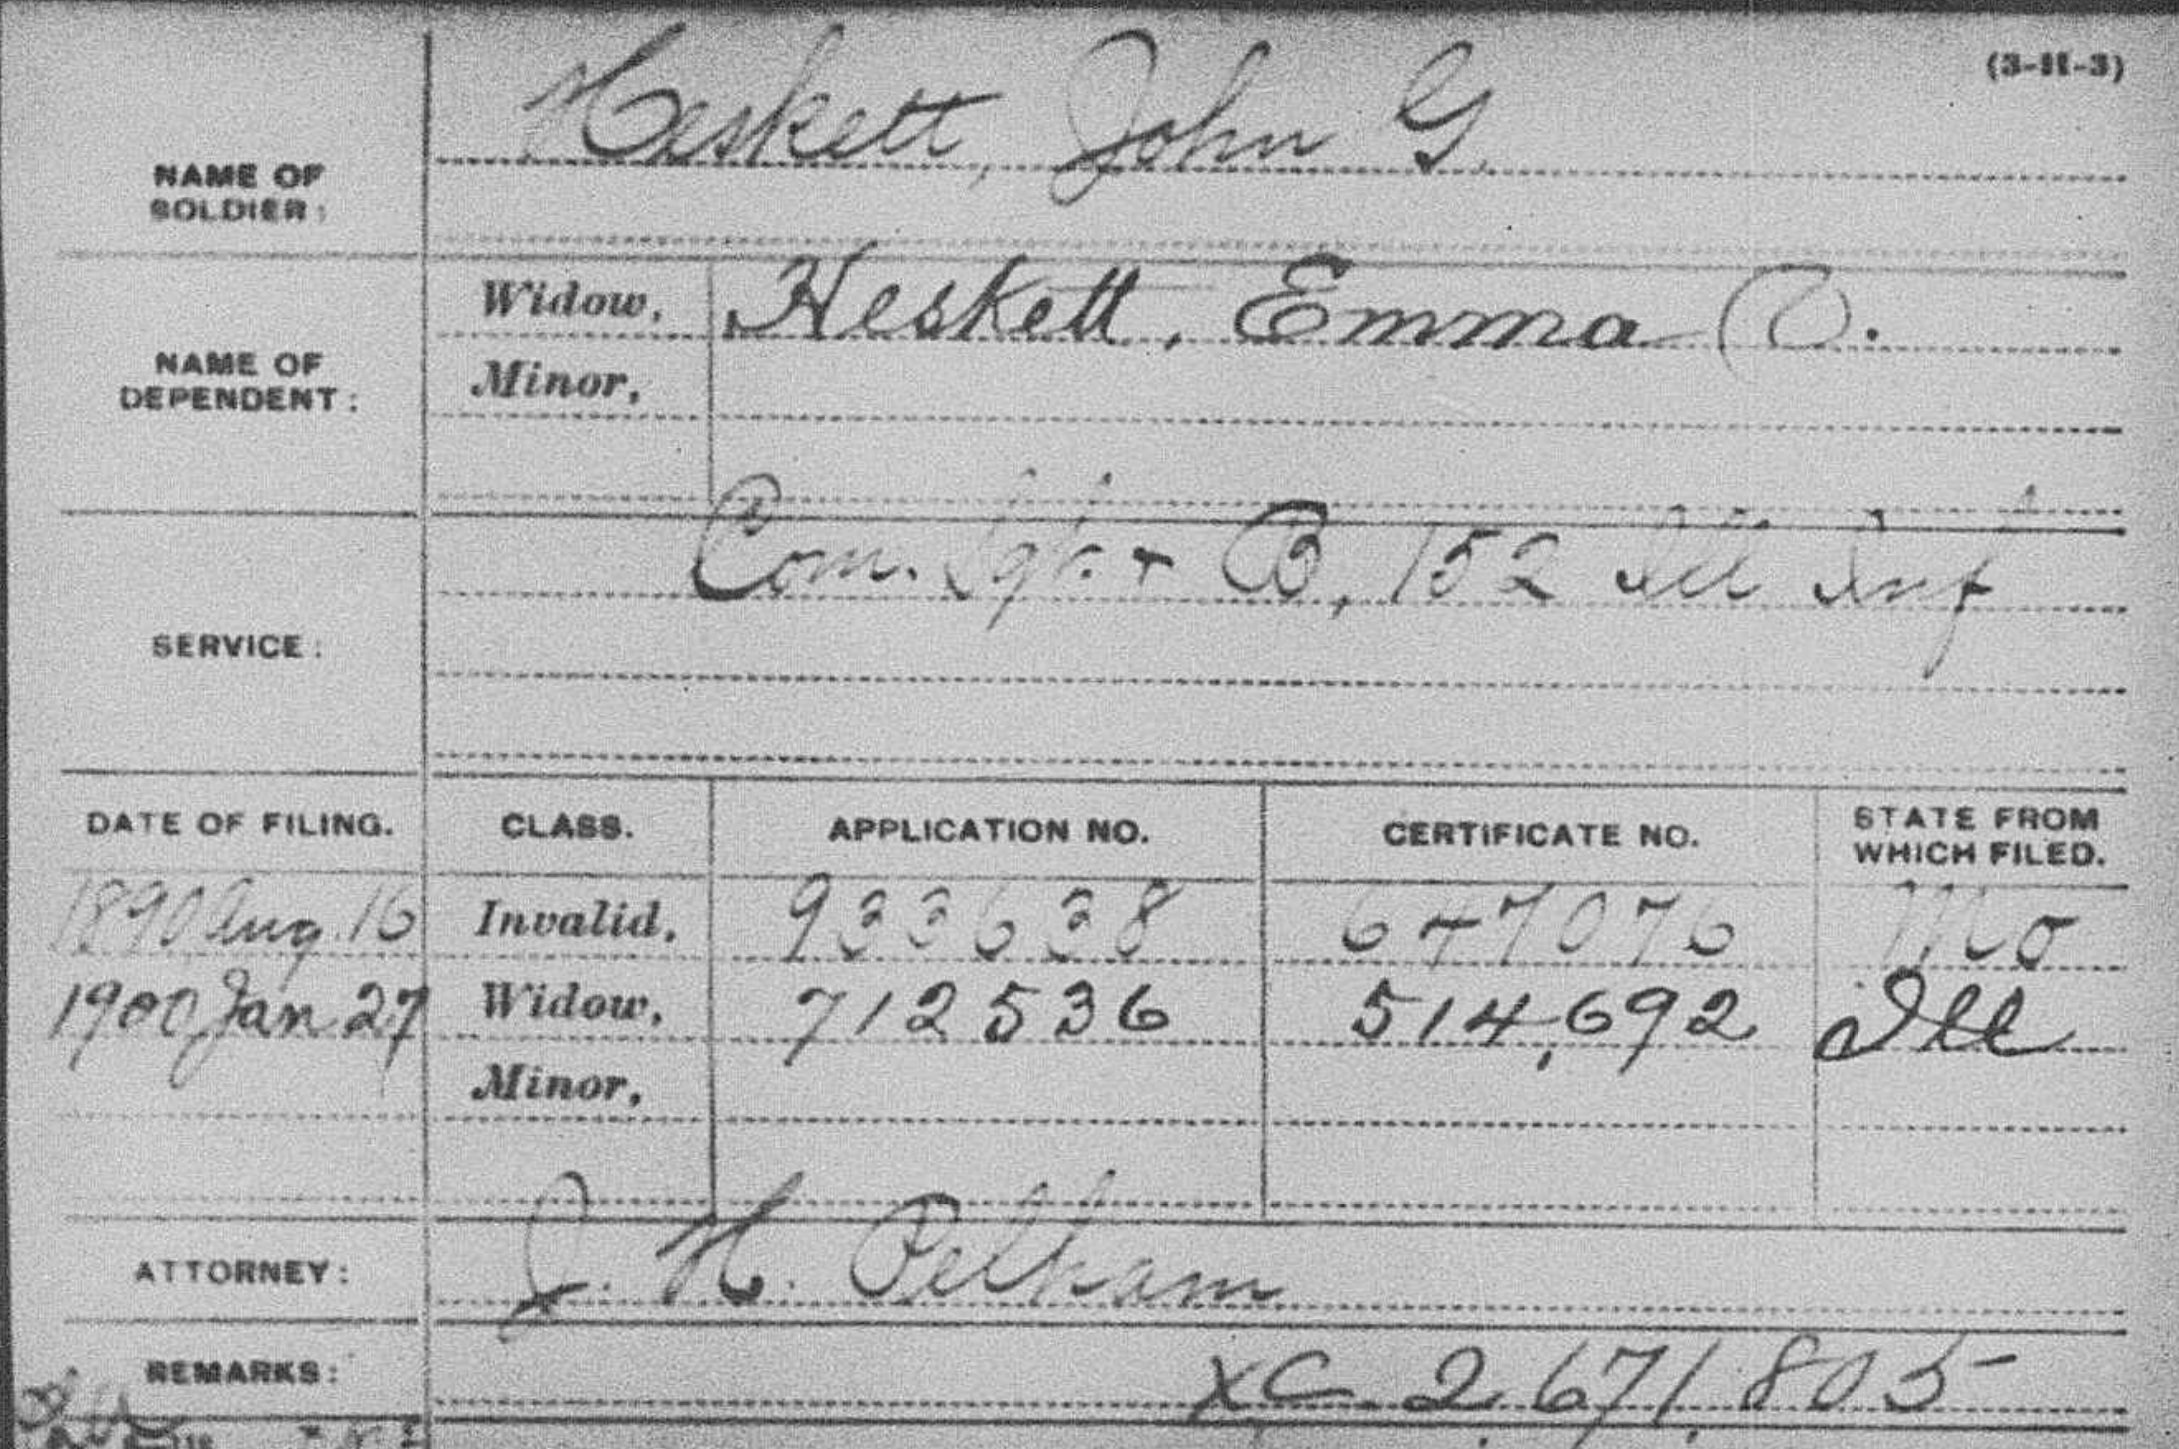 (3-H-3)
Heskett, John G.
NAME OF
SOLDIER:
Widow, Heskett, Emma C.
NAME OF
DEPENDENT:
Minor,
Com. Sgt. + B, 152 Ill Inf
SERVICE:
DATE OF FILING. CLASS. APPLICATION NO. CERTIFICATE NO. STATE FROM WHICH FILED.
1890 Aug. 16 Invalid, 933638 647076 Mo
1900 Jan 27 Widow, 712536 514,692 Ill
Minor,
ATTORNEY: J. H. Pelham
REMARKS: XC 2,671,805